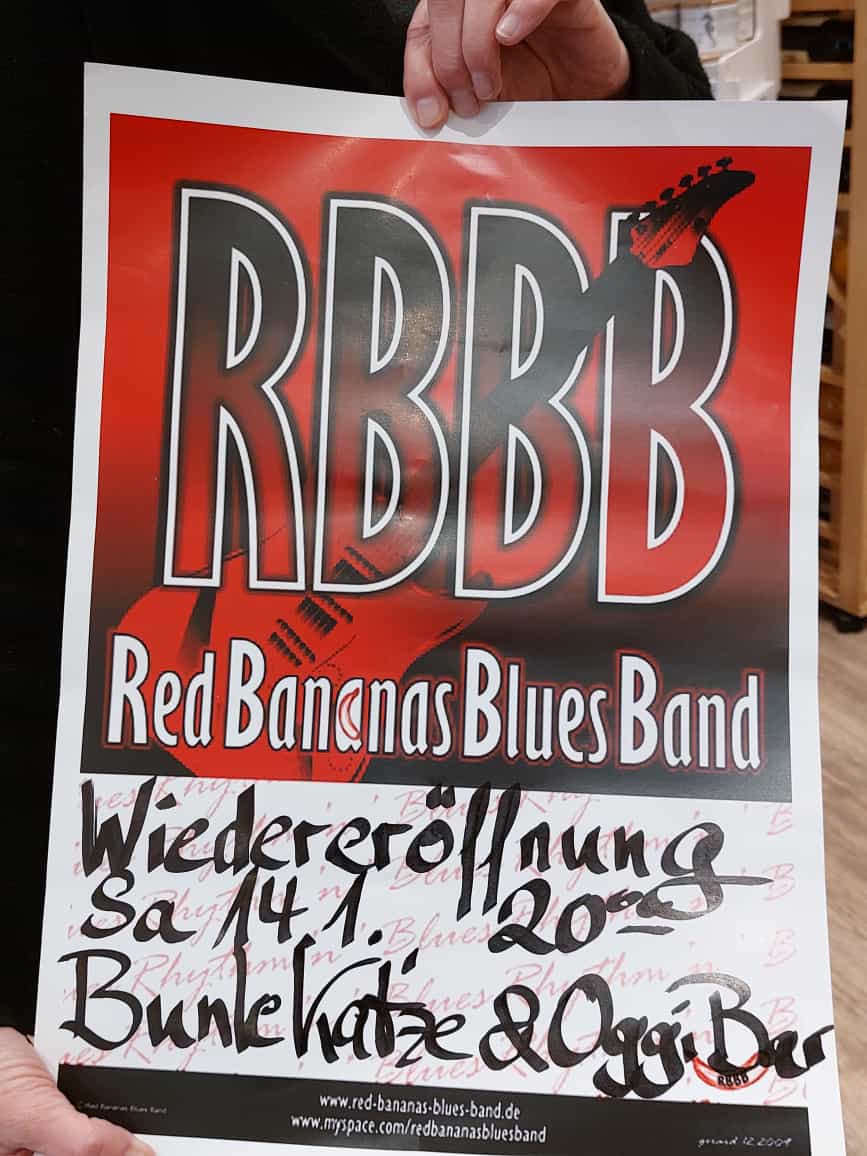 RBBB
Red Bananas Blues Band
Wiedereröffnung
Sa 14.1. 20⁰⁰
Bunte Katze & Oggi Bar
RBBB
www.red-bananas-blues-band.de
www.myspace.com/redbananasbluesband
©Red Bananas Blues Band
gerard 12.2009